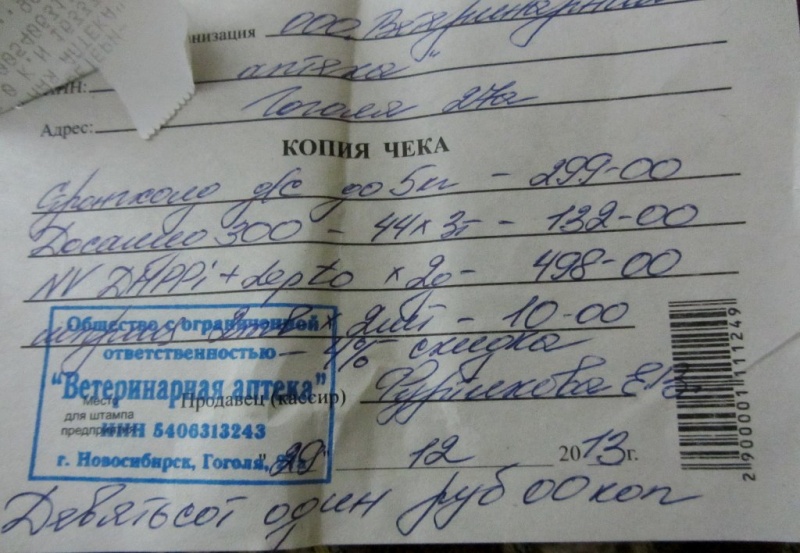 анизация ООО "Ветеринарная
ИНН: аптека"
Адрес: Гоголя 27а
КОПИЯ ЧЕКА
Фронтлайн д/с до 5кг - 299-00
300 - 44 х 3т - 132-00
NV DHPPi + Lepto х 2д - 498-00
х 2шт - 10-00
- 4% скидка
Общество с ограниченной
ответственностью
"Ветеринарная аптека"
Продавец (кассир) Е.В.
Место
для штампа
предприятия
ИНН 5406313243
г. Новосибирск, Гоголя,
"29" 12 2013г.
Девятьсот один руб 00 коп
2 900001 111249